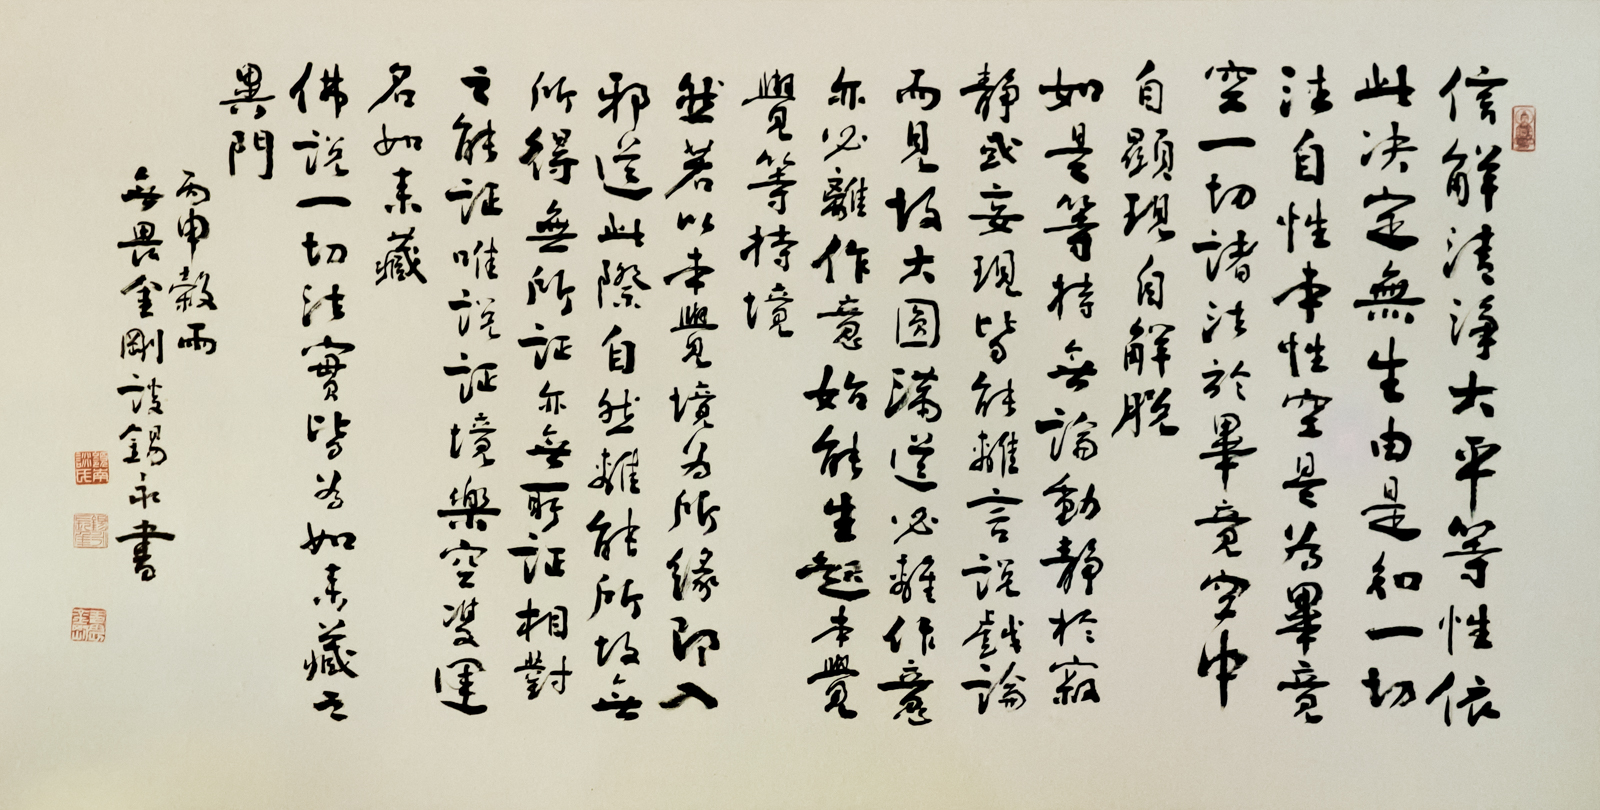 信解清淨大平等性依
此决定無生由是知一切
法自性本性空是為畢竟
空一切諸法於畢竟空中
自顯現自解脫
如是等持無論動靜於寂
靜或妄現皆能離言說戲論
而見故大圓滿道必離作意
亦必離作意始能生起本覺
覺等持境
然若以本覺境為所緣即入
邪道此際自然離能所故無
所得無所証亦無所証相對
之能証唯說証境樂空雙運
名如来藏
佛說一切法實皆為如来藏之
異門
丙申穀雨
無畏金剛談錫永書